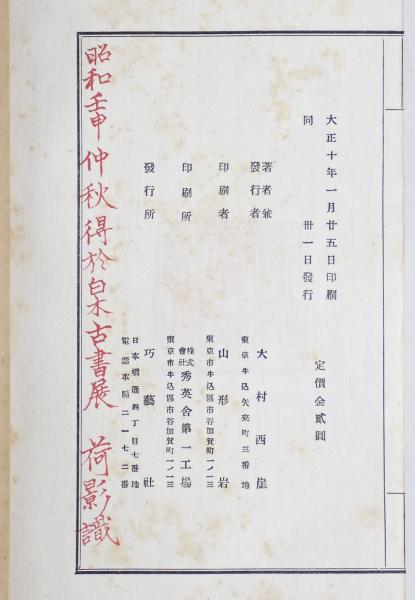 大正十年一月廿五日印刷
同 卅一日發行
定價金貳圓
著者兼
發行者
大村西崖
東京市牛込矢來町三番地
印刷者
山形岩
東京市牛込區市谷加賀町一ノ一三
印刷所
株式
會社
秀英舍第一工場
東京市牛込區市谷加賀町一ノ一三
發行所
巧藝社
日本橋通四丁目七番地
電話本局二一七二番
昭和壬申仲秋得於白木古書展 荷影識